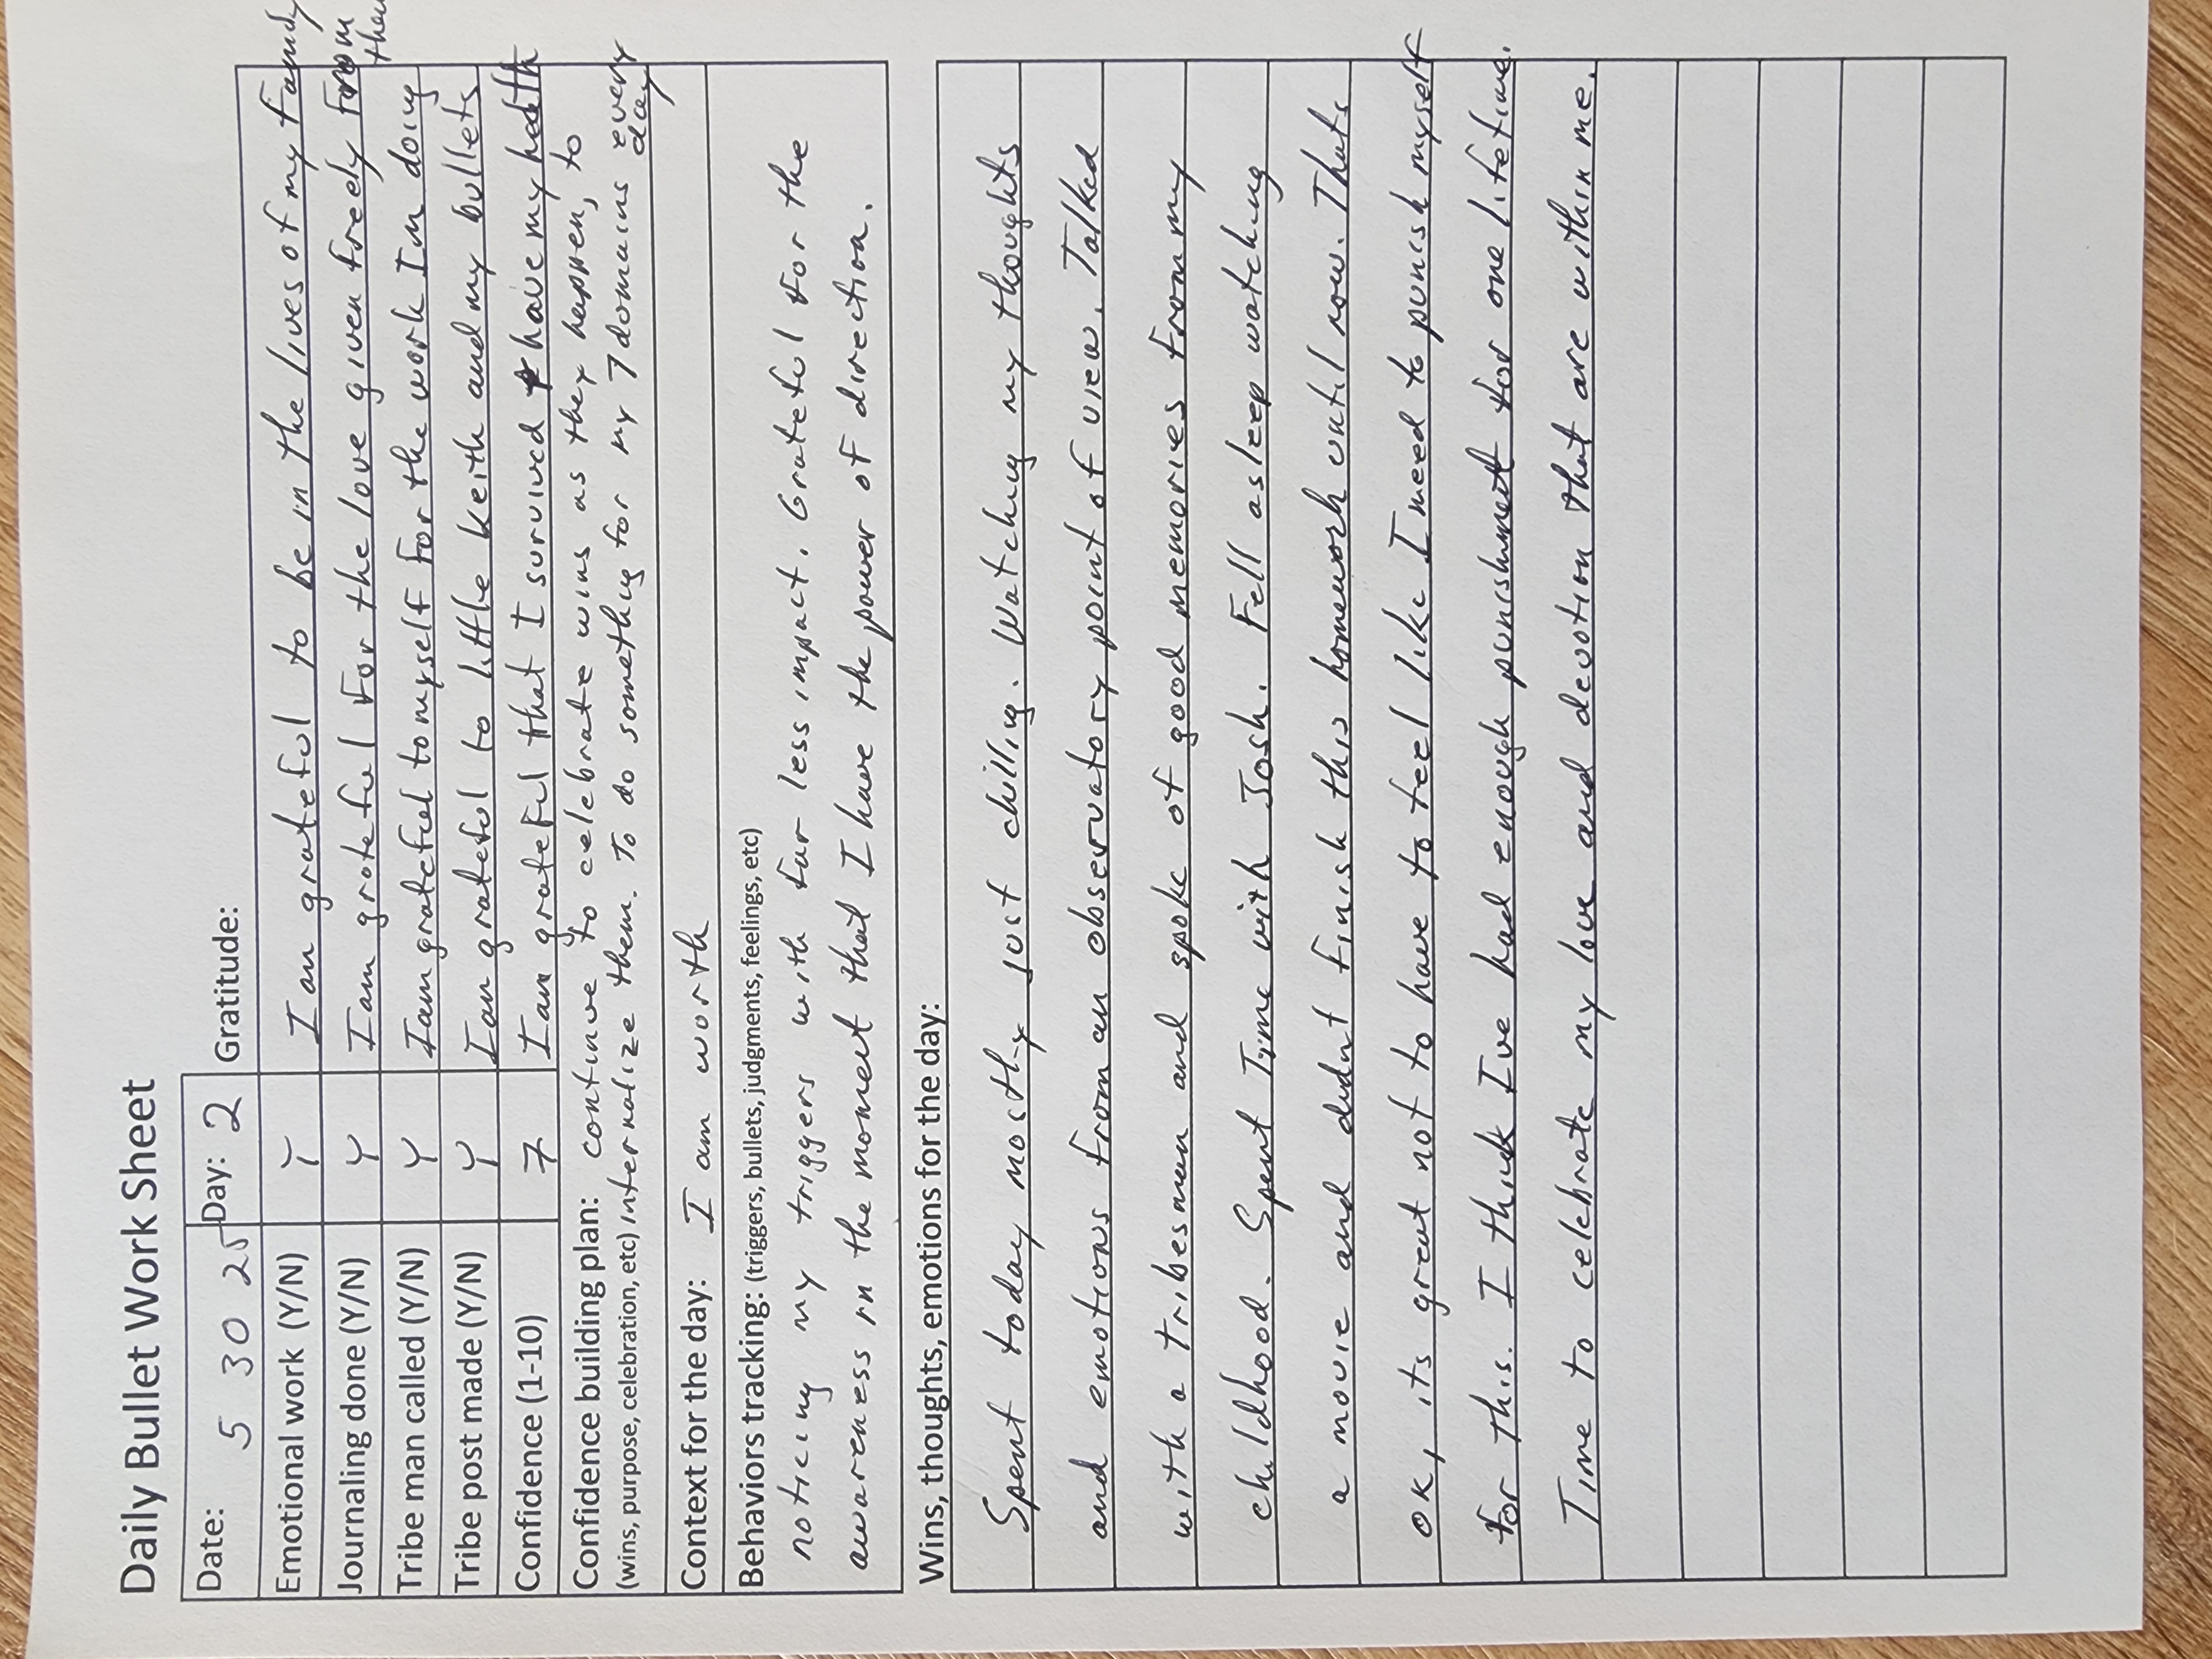 Daily Bullet Work Sheet
Date: 5 30 25 Day: 2 Gratitude:
Emotional work (Y/N) Y I am grateful to be in the lives of my family
Journaling done (Y/N) Y I am grateful for the love given freely from them
Tribe man called (Y/N) Y I am grateful to myself for the work Im doing
Tribe post made (Y/N) Y I am grateful to little keith and my bullets
Confidence (1-10) 7 I am grateful that I survived have my health
Confidence building plan: continue to celebrate wins as they happen, to
(wins, purpose, celebration, etc) internalize them. To do something for my 7 domains every day
Context for the day: I am worth
Behaviors tracking: (triggers, bullets, judgments, feelings, etc)
noticing my triggers with far less impact. Grateful for the
awareness in the moment that I have the power of direction.
Wins, thoughts, emotions for the day:
Spent today mostly just chilling. Watching my thoughts
and emotions from an observatory point of view. Talked
with a tribesman and spoke of good memories from my
childhood. Spent Time with Josh. Fell asleep watching
a movie and didnt finish this homework until now. Thats
ok, its great not to have to feel like I need to punish myself
for this. I think Ive had enough punishment for one lifetime.
Time to celebrate my love and devotion that are within me.